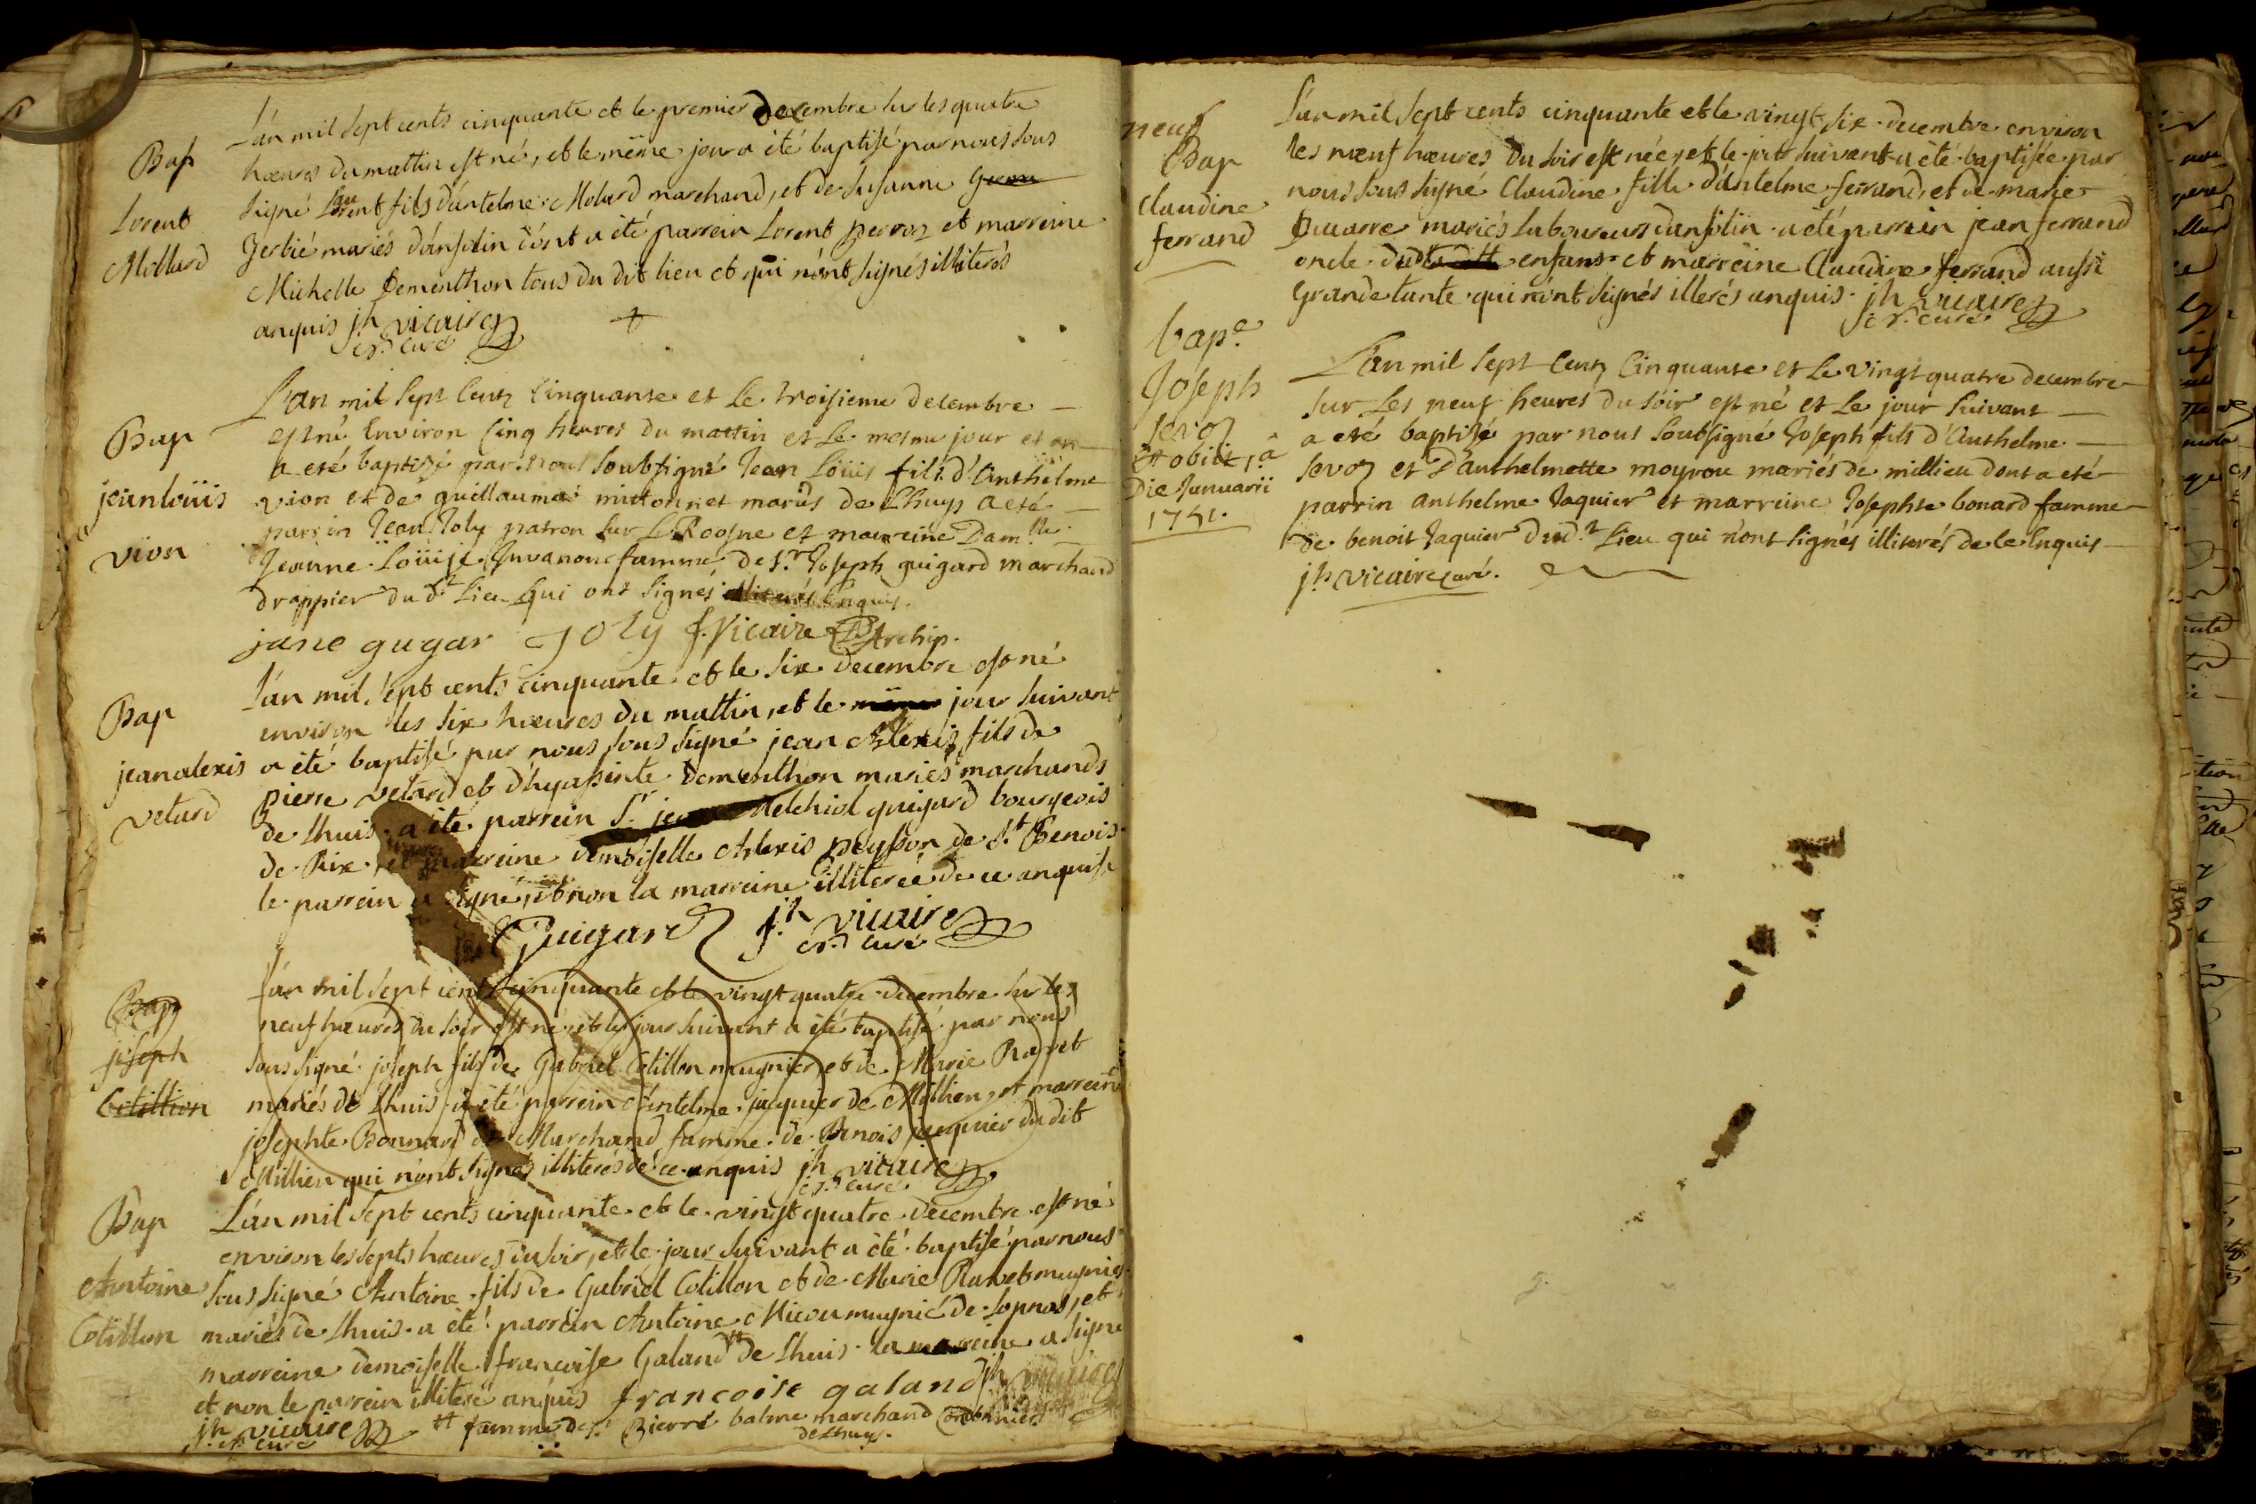 Bap
Lorent
Mollard
L'án mil sept cents cinquante et le premier decembre sur les quatre
hœures du mattin est né, et le mëme jour a été baptisé par nous sous
signé Laurent fils d'ántelme Molard marchand, et de Susanne
Gerbié mariés d'ánsolin dónt a été parrein Lorent perron et marreine
Michelle Dementhon tous du dit lieu et qui n'ónt signés illiterés
anquis jh vicaire
curé
Bap
jean loüis
vion
L'an mil sept Centz Cinquante et Le troisieme decembre
est né Environ Cinq heures du mattin et Le mesme jour et an
a eté baptizé par nous Soubsigné Jean Loüis fils d'Anthelme
vion et de guillauma mintonnet mariés de Lhuys a eté
parrin Jean Joly patron sur Le Rosne et marreine Dam.lle
Jeanne Loüise Juvanon famme de S.r Joseph guigard marchand
drappier du d.t Lieu qui ont signés Enquis.
jane gugar Joly J. Vicaire Archip.
Bap
jean alexis
vetard
L'án mil sept cents cinquante et le six decembre est né
environ les six hœures du mattin, et le jour suivant
a été baptisé par nous sous signé jean Alexis fils de
pierre vetard et d'hyassinte Dementhon mariés marchands
de Lhuis a été parrein S.r jean Melchiol guigard bourgeois
de Rix, et marreine demoiselle Alexis peysson de S.t Benois
le parrein a signé, et non la marreine illiterée de ce anquise
Guigard jh vicaire
curé
Bap
joseph
Cotillion
L'án mil sept cents cinquante et le vingt quatre decembre sur les
neuf hœures du soir est né et le jour suivant a été baptisé par nous
sous signé joseph fils de Gabriel Cotillon mugnier, et de Marie Ravet
mariés de Lhuis a été parrein Antelme jaquier de Millieu, et marreine
josephte Bonnard Marchand famme de Benois jaquier du dit
Millieu qui n'ónt signés illiterés de ce anquis jh vicaire
curé
Bap
Antoine
Cotillon
L'án mil sept cents cinquante et le vingt quatre decembre est né
environ les sépts hœures du soir, et le jour suivant a été baptisé par nous
sous signé Antoine fils de Gabriel Cotillon et de Marie Ravet mugnier
mariés de Lhuis a été parrein Antoine Micou mugnié de Lopnas, et
marreine demoiselle francoise Galand tt de Lhuis la marreine a signé
et non le parrein illiteré anquis francoise galand jh vicaire
jh vicaire tt famme de S.r Pierre balme marchand Cordonnier
curé de Lhuys.
neuf
Bap
Claudine
ferrand
L'án mil sept cents cinquante et le vingt-six decembre environ
les nœuf hœures du soir est née, et le jour suivant a été baptisée par
nous sous signé Claudine fille d'ántelme ferrand, et de marie
Ducarre mariés laboureurs d'ansolin a été parrein jean ferrand
oncle du enfans et marreine Claudine ferrand aussi
Grande tante qui n'ónt signés illerés anquis jh vicaire
curé
bap.e
Joseph
sevoz
Et obiit 1.a
Die Januarii
1751.
L'an mil sept Centz Cinquante et Le vingt quatre decembre
sur Les neuf heures du soir est né et Le jour suivant
a eté baptizé par nous Soubsigné Joseph fils d'Anthelme
sevoz et D'anthelmette moyrou mariés de millieu dont a eté
parrin anthelme Jaquier et marreine Josephte bonard famme
de benoit Jaquier dud.t Lieu qui n'ont signés illiterés de ce Enquis
jh vicaire curé.